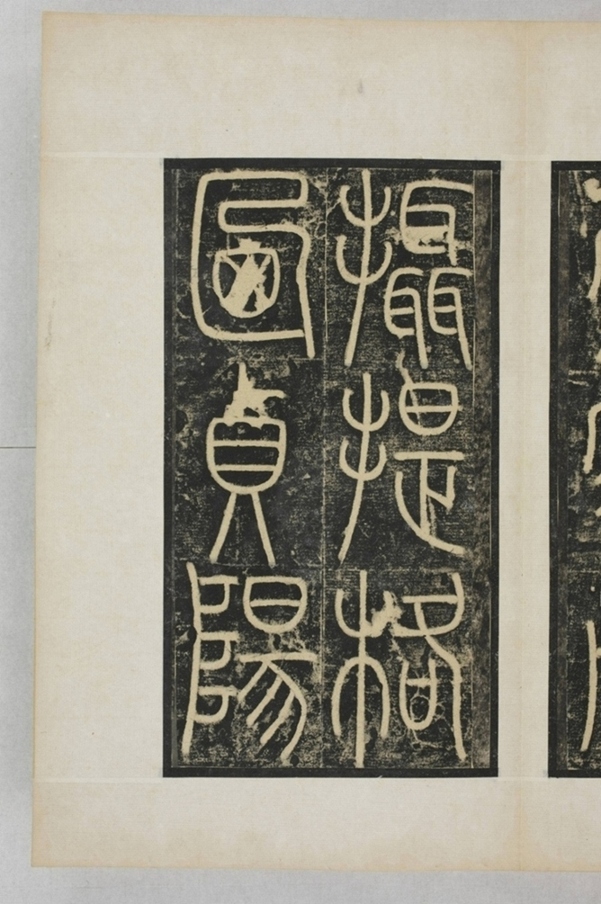 攝提格
貞陽